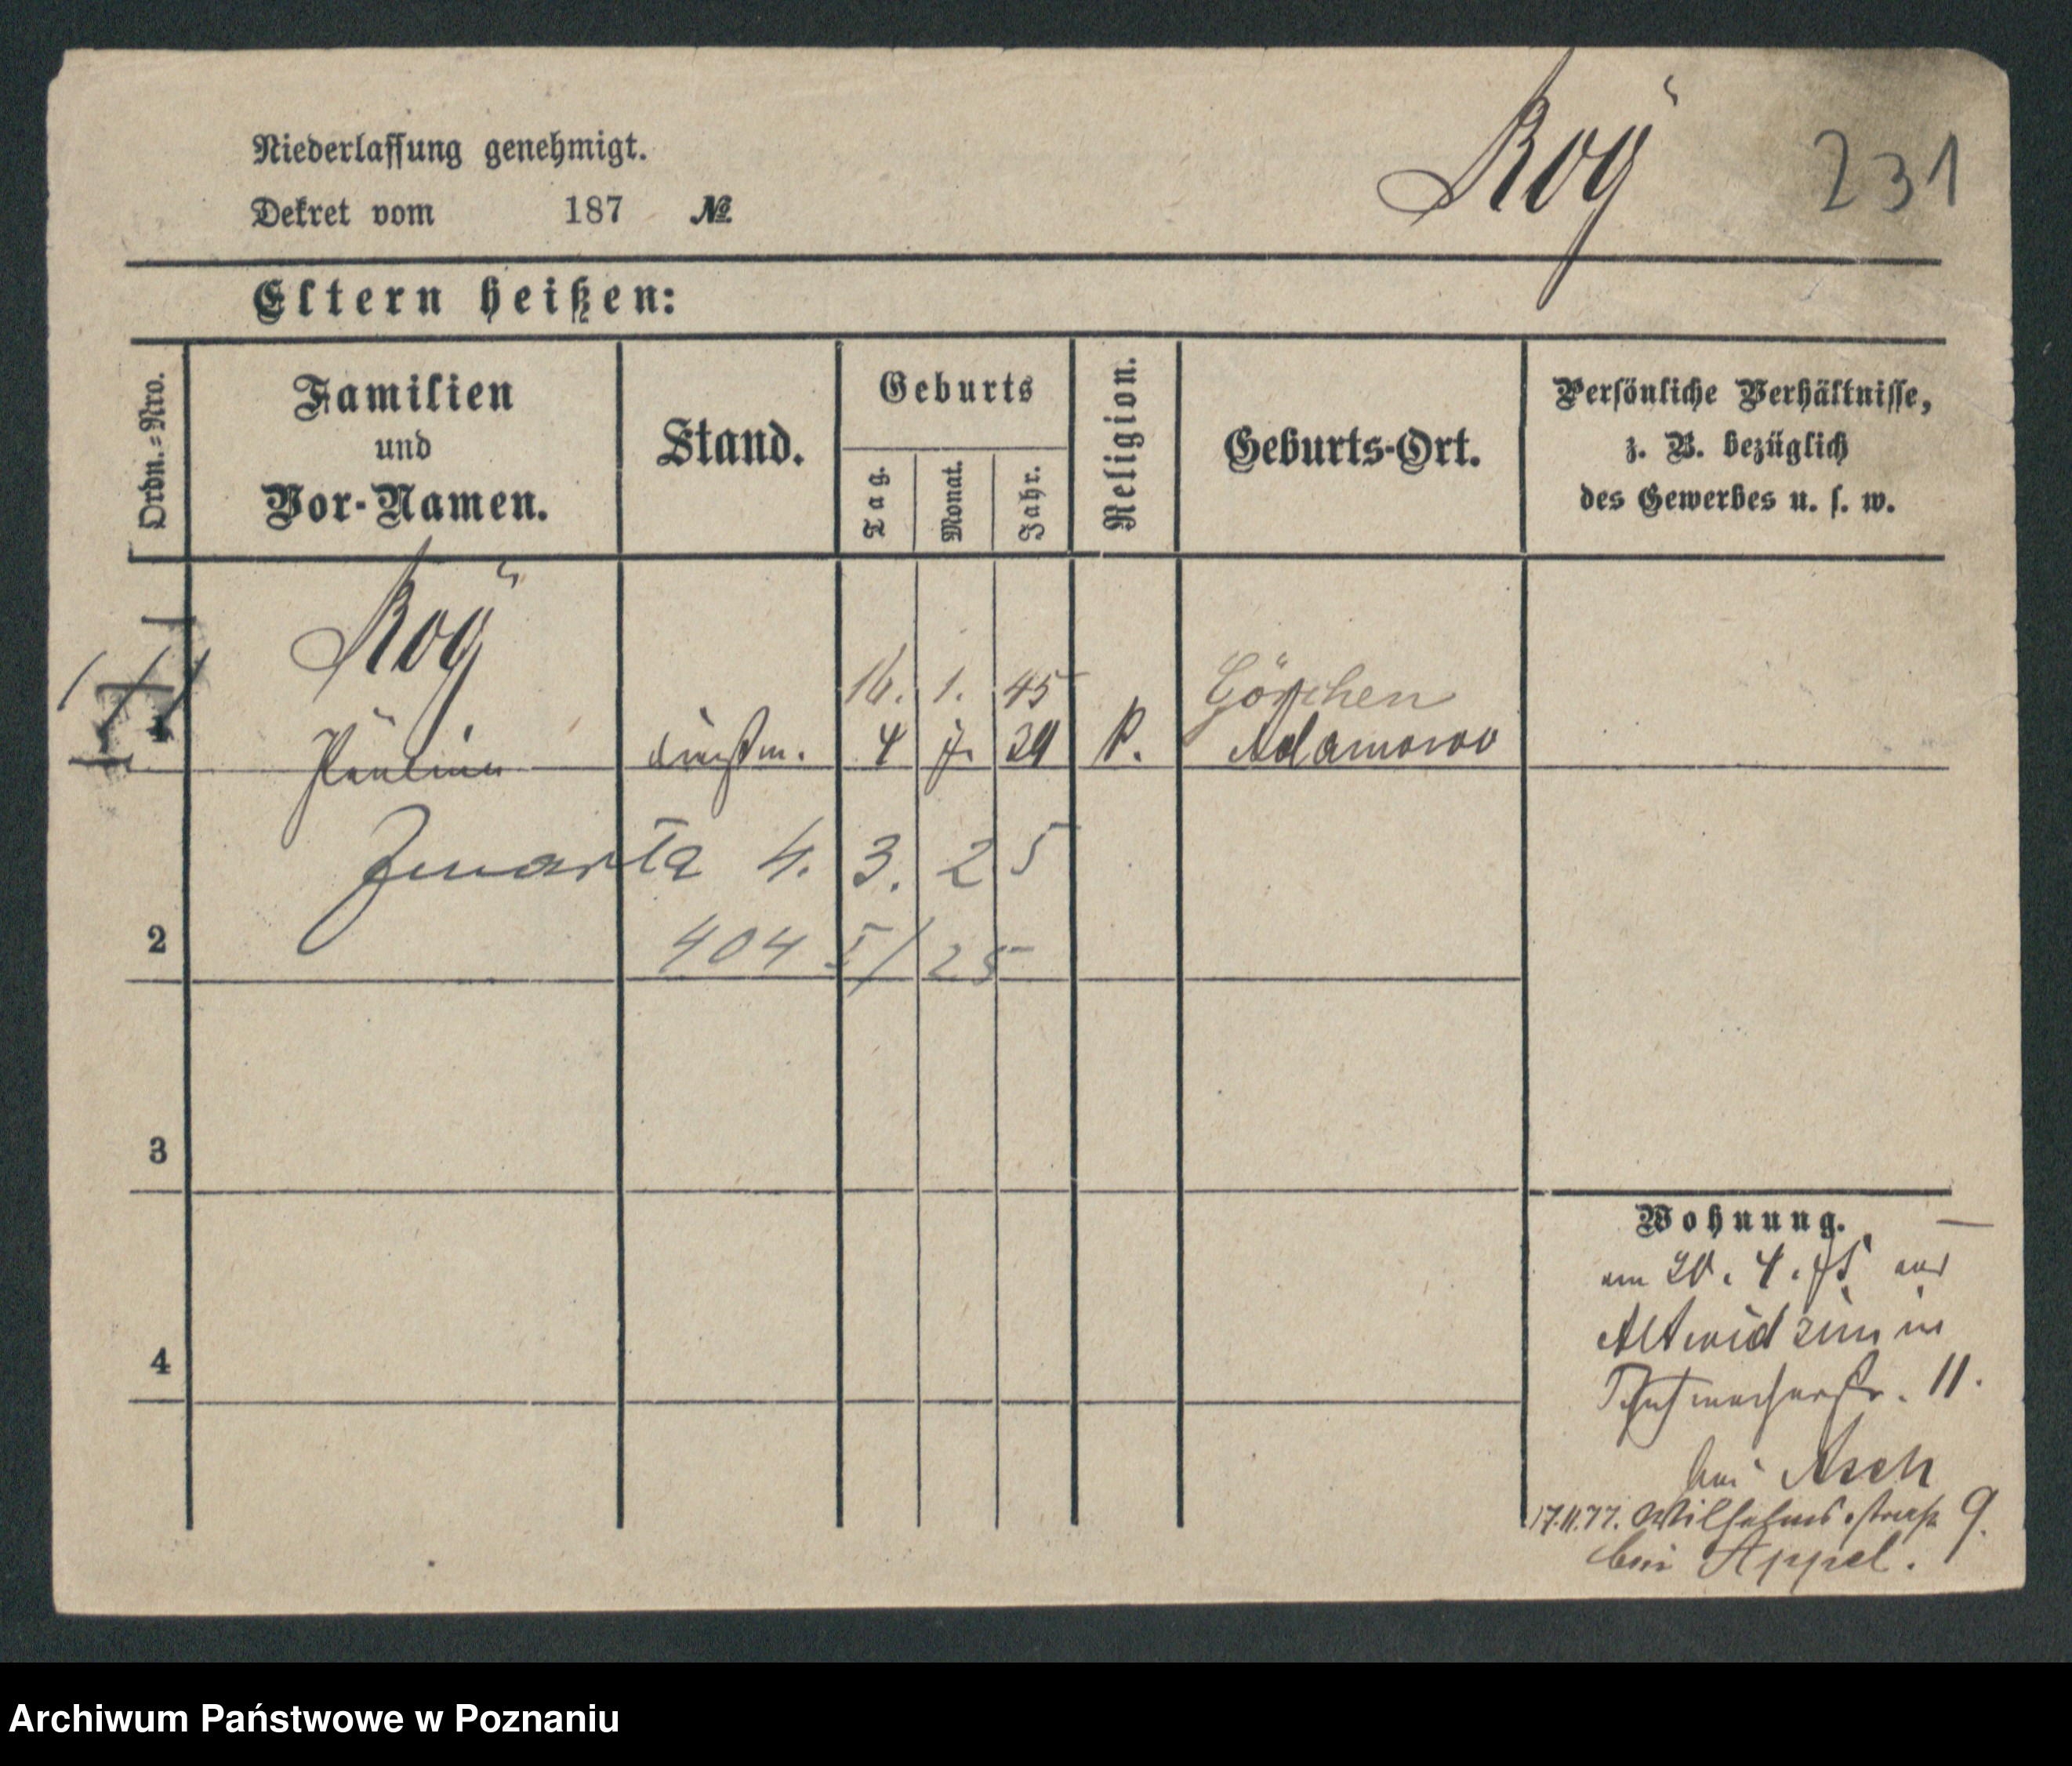 Roÿ 231
Niederlassung genehmigt.
Dekret vom 187 №
Eltern heißen:
Ordn.=Nro.
Familien
und
Vor-Namen.
Stand.
Geburts
Tag.
Monat.
Jahr.
Religion.
Geburts-Ort.
Persönliche Verhältnisse,
z. B. bezüglich
des Gewerbes u. s. w.
Roÿ
16. 1. 45 Görchen
1 Pauline dienstm. 4 7. 29 k. Adamowo
zmarła 4. 3. 25
2 404 I/25
3
4
Wohnung.
am 20. 4. 75 aus
Altwidzim in
Schuhmacherstr. 11.
bei Asch
17.11.77. Wilhelmsstraße 9.
bei Appel.
Archiwum Państwowe w Poznaniu